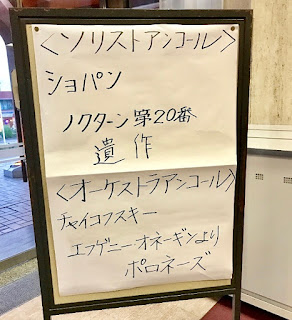 <ソリストアンコール>
ショパン
ノクターン第20番
遺作
<オーケストラアンコール>
チャイコフスキー
エフゲニー・オネーギンより
ポロネーズ